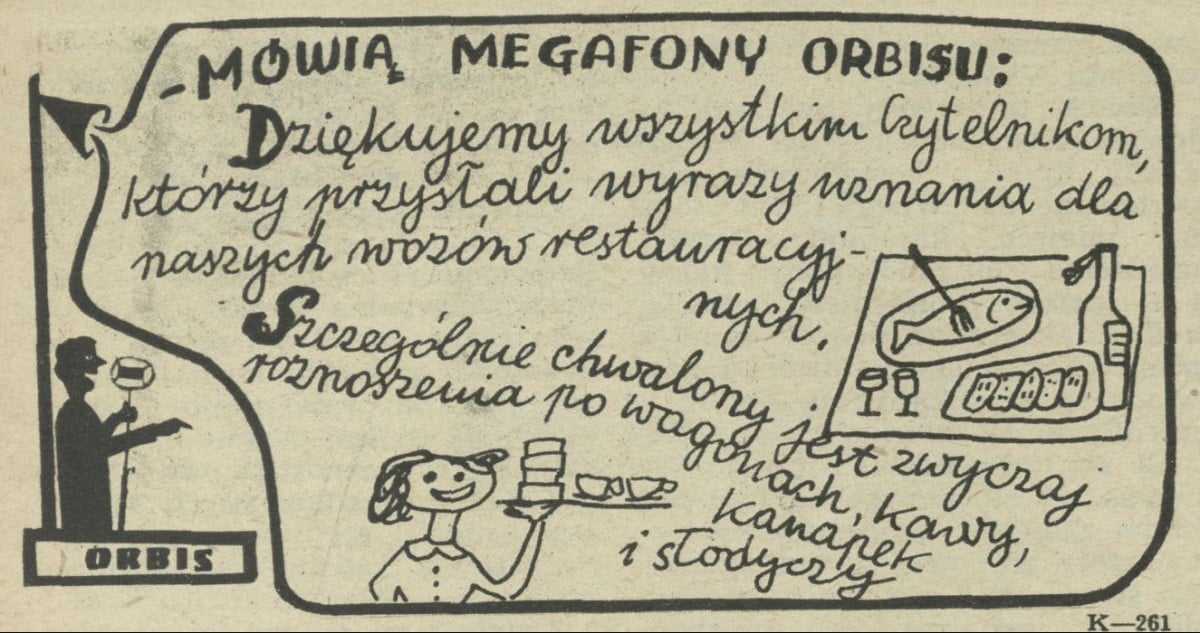 - MÓWIĄ MEGAFONY ORBISU:
Dziękujemy wszystkim Czytelnikom,
którzy przysłali wyrazy uznania dla
naszych wozów restauracyj-
nych.
Szczególnie chwalony jest zwyczaj
roznoszenia po wagonach, kawy,
kanapek
i słodyczy
ORBIS
K—261